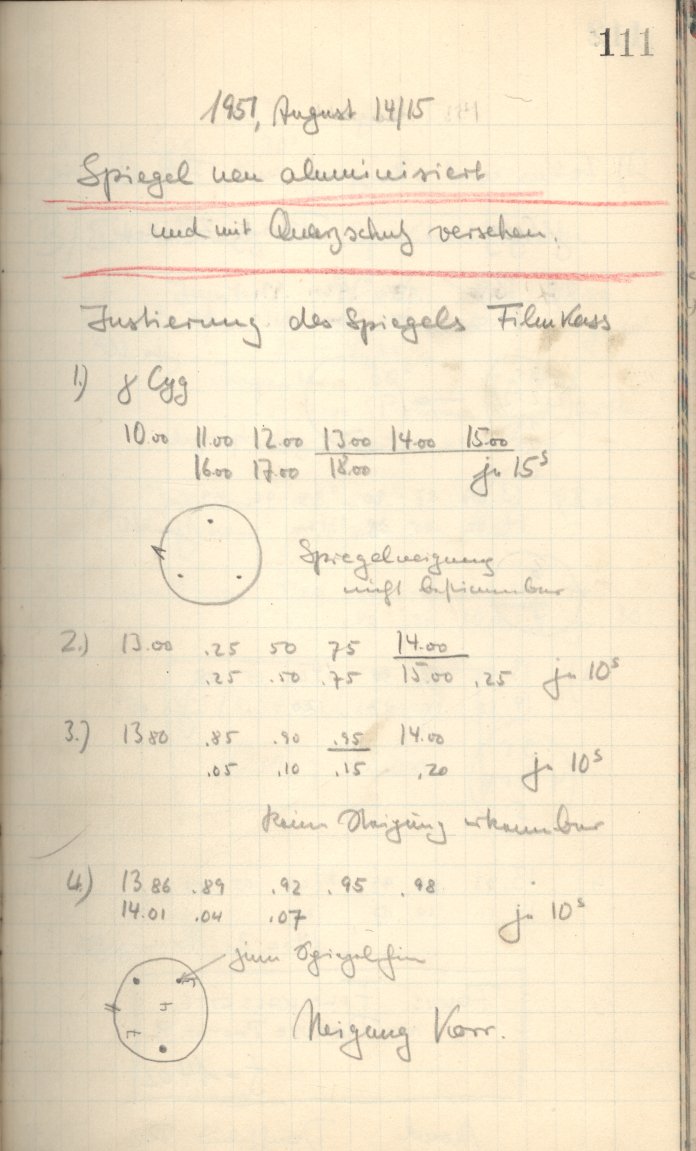 111
1951, August 14/15
Spiegel neu aluminisiert
und mit Quarzschutz versehen.
Justierung des Spiegels FilmKass
1.) γ Cyg
10.00 11.00 12.00 13.00 14.00 15.00
16.00 17.00 18.00 je 15s
Spiegelneigung
nicht bestimmbar
2.) 13.00 .25 50 75 14.00
.25 .50 .75 15.00 .25 je 10s
3.) 13 80 .85 .90 .95 14.00
.05 .10 .15 .20 je 10s
keine Neigung erkennbar
4.) 13 86 .89 .92 .95 .98
14.01 .04 .07 je 10s
zum
Neigung Korr.